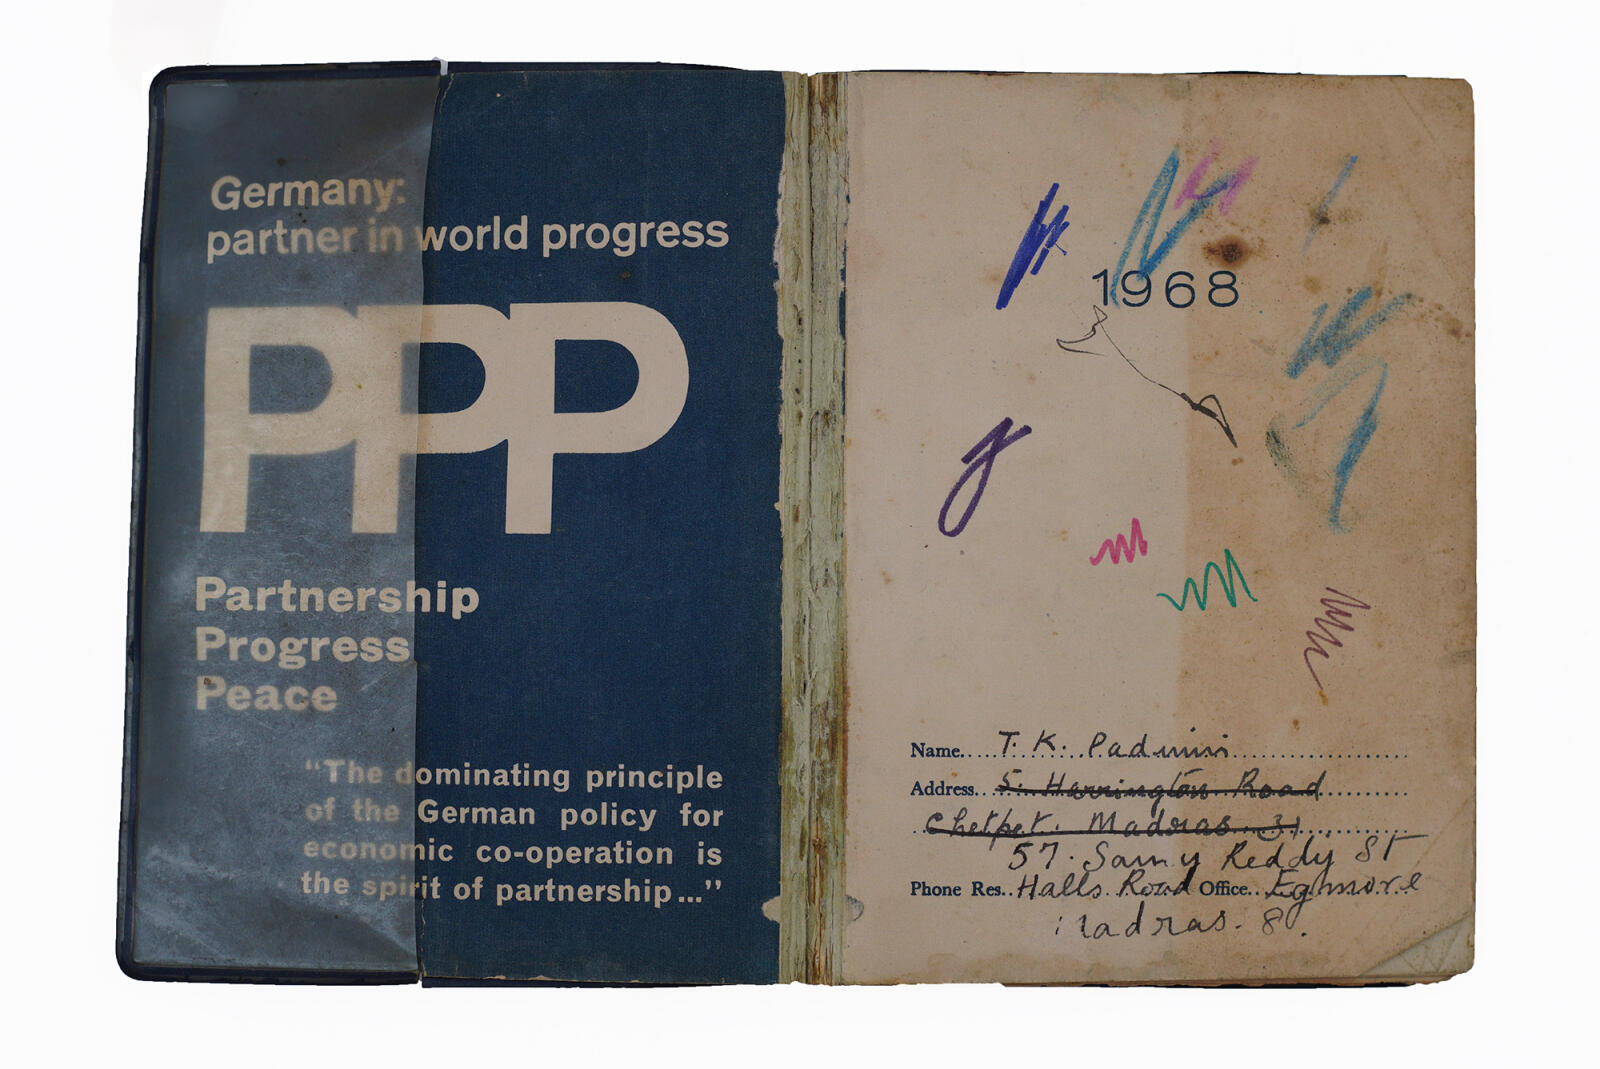 Germany:
partner in world progress
PPP
Partnership
Progress
Peace
“The dominating principle
of the German policy for
economic co-operation is
the spirit of partnership...”
1968
Name.... T. K. Padmini
Address.. 5. Harrington Road
Chetpet. Madras. 31
57. Samy Reddy St
Phone Res.. Halls Road Office.. Egmore
Madras. 8.